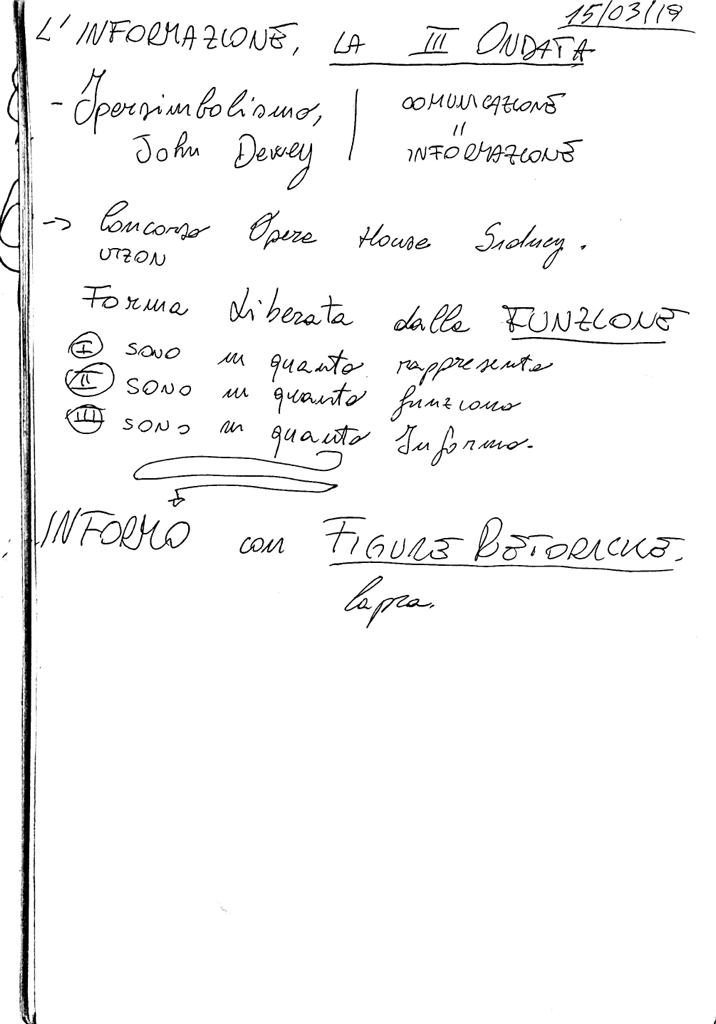 15/03/19
L'INFORMAZIONE, LA III ONDATA
- Ipersimbolismo, | COMUNICAZIONE
John Dewey | " INFORMAZIONE
-> Concorso Opera House Sidney.
UTZON
Forma Liberata dalla FUNZIONE
I SONO in quanto rappresento
II SONO in quanto funziono
III SONO in quanto Informo.
INFORMO con FIGURE RETORICHE.